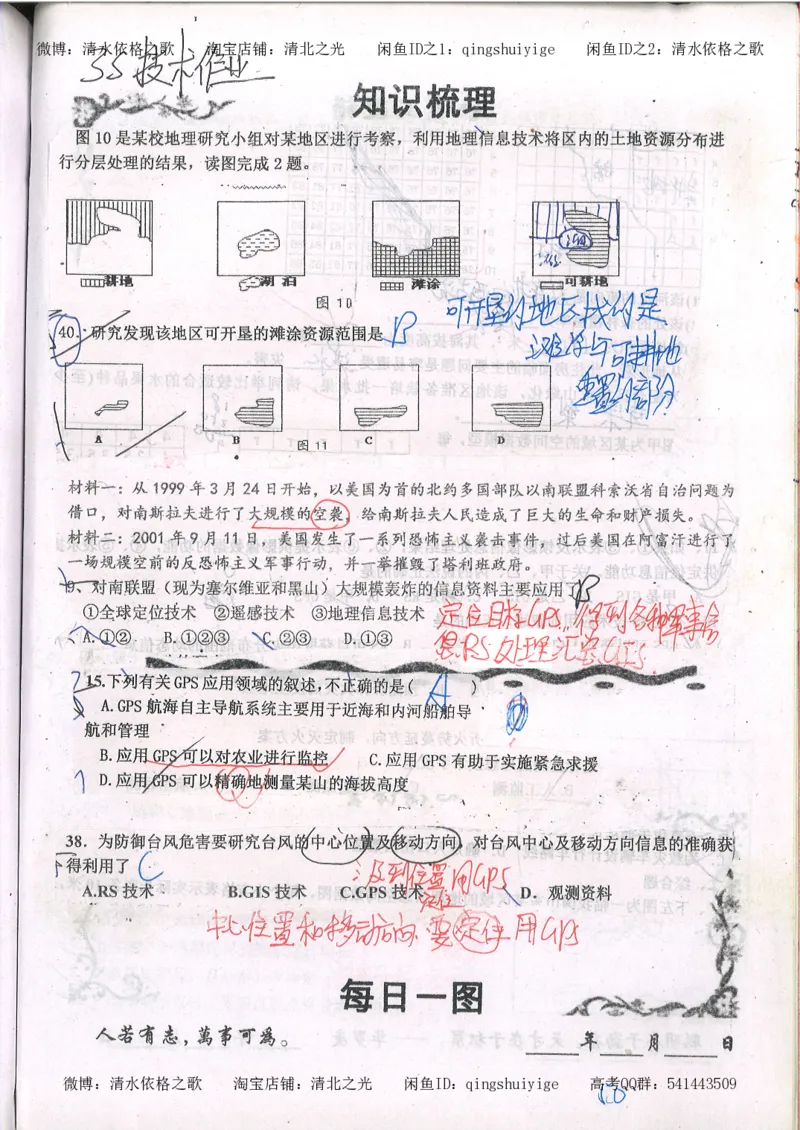 微博：清水依格之歌 淘宝店铺：清北之光 闲鱼ID之1：qingshuiyige 闲鱼ID之2：清水依格之歌
SS 技术作业
知识梳理
图 10 是某校地理研究小组对某地区进行考察，利用地理信息技术将区内的土地资源分布进
行分层处理的结果，读图完成 2 题。
耕地 湖泊 滩涂 可耕地
图 10
可开垦的地区找的是
40．研究发现该地区可开垦的滩涂资源范围是 B
滩涂与可耕地
重置的部分
A B C D
图 11
材料一：从 1999 年 3 月 24 日开始，以美国为首的北约多国部队以南联盟科索沃省自治问题为
借口，对南斯拉夫进行了大规模的空袭，给南斯拉夫人民造成了巨大的生命和财产损失。
材料二：2001 年 9 月 11 日，美国发生了一系列恐怖主义袭击事件，过后美国在阿富汗进行了
一场规模空前的反恐怖主义军事行动，并一举摧毁了塔利班政府。
9、对南联盟（现为塞尔维亚和黑山）大规模轰炸的信息资料主要应用了 B
①全球定位技术 ②遥感技术 ③地理信息技术
定位目标GPS，得到各种军事信
A.①② B.①②③ C.②③ D.①③
息RS 处理汇安GIS
15.下列有关 GPS 应用领域的叙述，不正确的是( A )
A.GPS 航海自主导航系统主要用于近海和内河船舶导
航和管理
B.应用 GPS 可以对农业进行监控 C.应用 GPS 有助于实施紧急求援
D.应用 GPS 可以精确地测量某山的海拔高度
38．为防御台风危害要研究台风的中心位置及移动方向，对台风中心及移动方向信息的准确获
得利用了 C
涉及到位置用GPS
A.RS 技术 B.GIS 技术 C.GPS 技术 D．观测资料
定位
中心位置和移动方向 要定位 用GPS
每日一图
人若有志，萬事可為。
年 月 日
微博：清水依格之歌 淘宝店铺：清北之光 闲鱼ID：qingshuiyige 高考QQ群：541443509